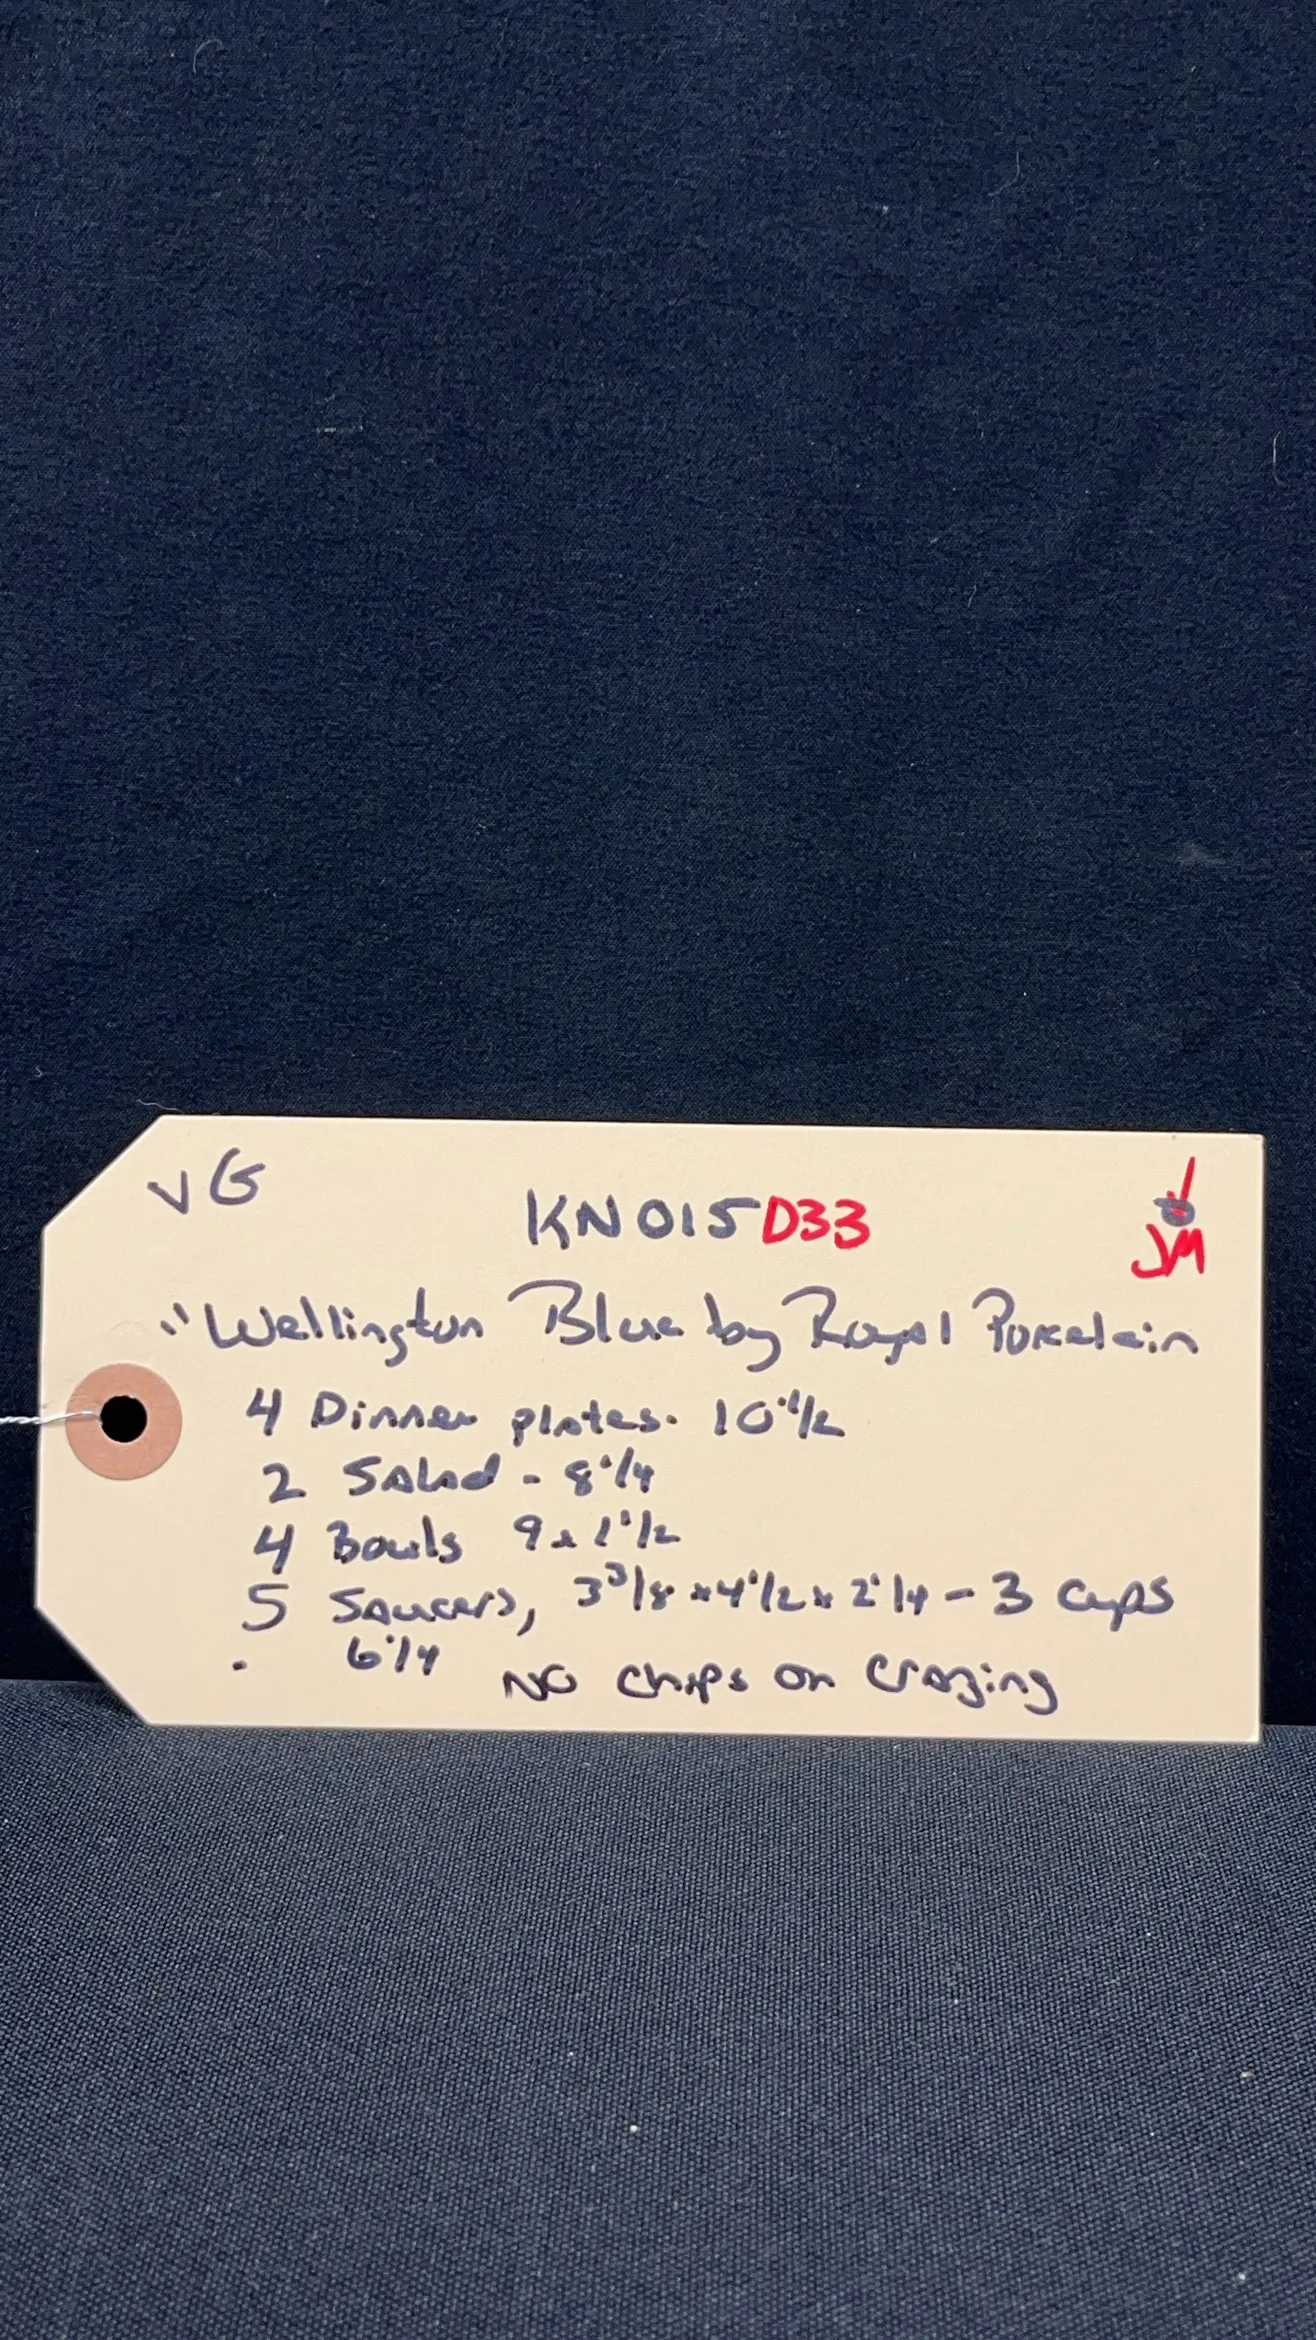 VG
KN015D33
JM
"Wellington Blue by Royal Porcelain
4 Dinner plates. 10 1/2
2 Salad - 8 1/4
4 Bowls 9 x 1 1/2
5 Saucers, 3 3/8 x 4 1/2 x 2 1/4 - 3 Cups
6 1/4
NO Chips or Crazing